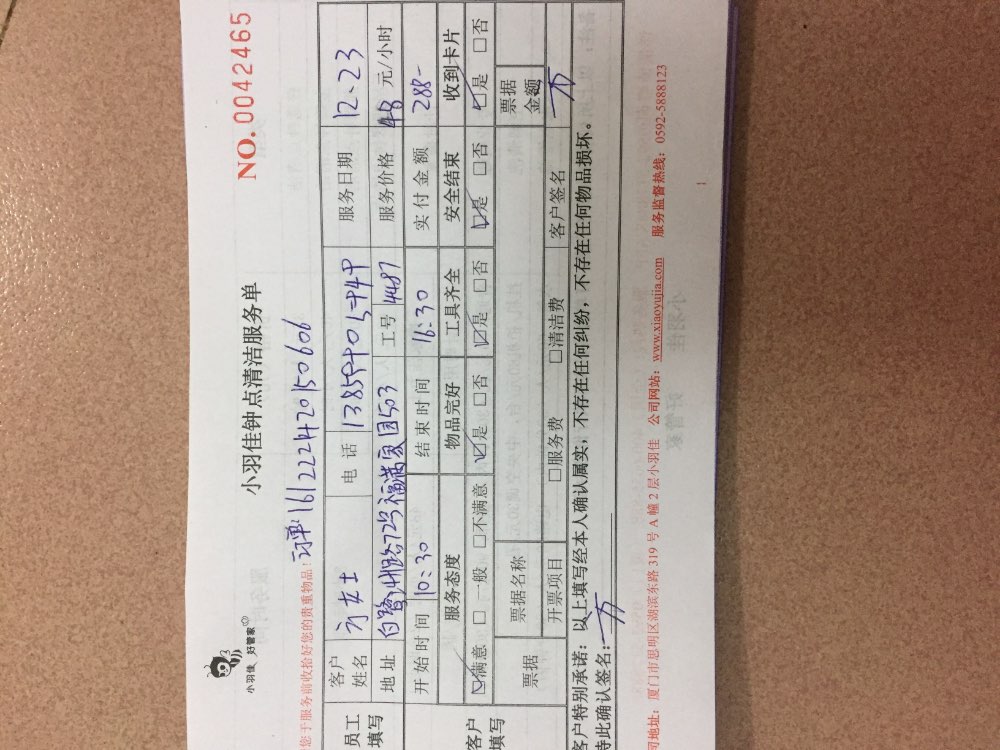 小羽佳 好管家
小羽佳钟点清洁服务单
NO.0042465
您于服务前收拾好您的贵重物品! 订单:161222420150606
员工填写 客户姓名 方女士 电话 服务日期 12.23
地址 白鹭洲路72号福满家园503 工号 4487 服务价格 48 元/小时
开始时间 10:30 结束时间 16:30 实付金额 288-
客户填写 服务态度 物品完好 工具齐全 安全结束 收到卡片
☑满意 □一般 □不满意 ☑是 □否 ☑是 □否 ☑是 □否 ☑是 □否
票据 票据名称 票据金额
开票项目 □服务费 □清洁费 客户签名 方
客户特别承诺:以上填写经本人确认属实,不存在任何纠纷,不存在任何物品损坏。
特此确认签名: 方
司地址: 厦门市思明区湖滨东路 319 号 A 幢 2 层小羽佳 公司网站: www.xiaoyujia.com 服务监督热线: 0592-5888123
1